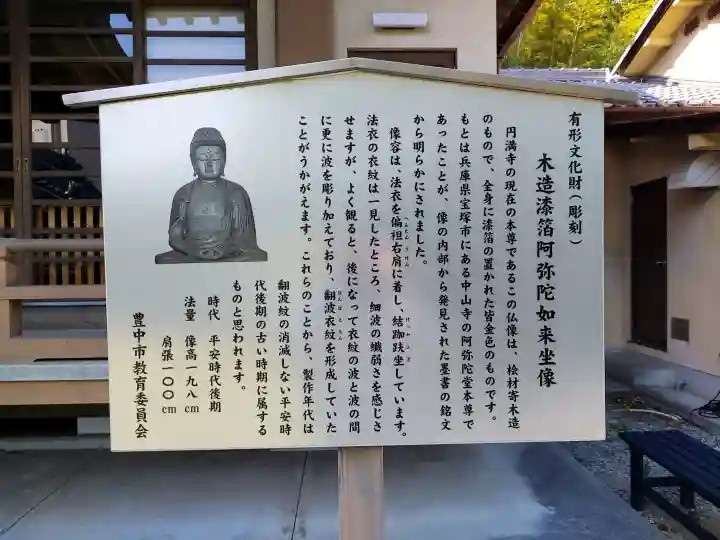 有形文化財(彫刻)
木造漆箔阿弥陀如来坐像
円満寺の現在の本尊であるこの仏像は、桧材寄木造
のもので、全身に漆箔の置かれた皆金色のものです。
もとは兵庫県宝塚市にある中山寺の阿弥陀堂本尊で
あったことが、像の内部から発見された墨書の銘文
から明らかにされました。
像容は、法衣を偏袒右肩に着し、結跏趺坐しています。
法衣の衣紋は一見したところ、細波の繊弱さを感じさ
せますが、よく観ると、後になって衣紋の波と波の間
に更に波を彫り加えており、翻波衣紋を形成していた
ことがうかがえます。これらのことから、製作年代は
翻波紋の消滅しない平安時
代後期の古い時期に属する
ものと思われます。
時代 平安時代後期
法量 像高一九八cm
肩張一〇〇cm
豊中市教育委員会